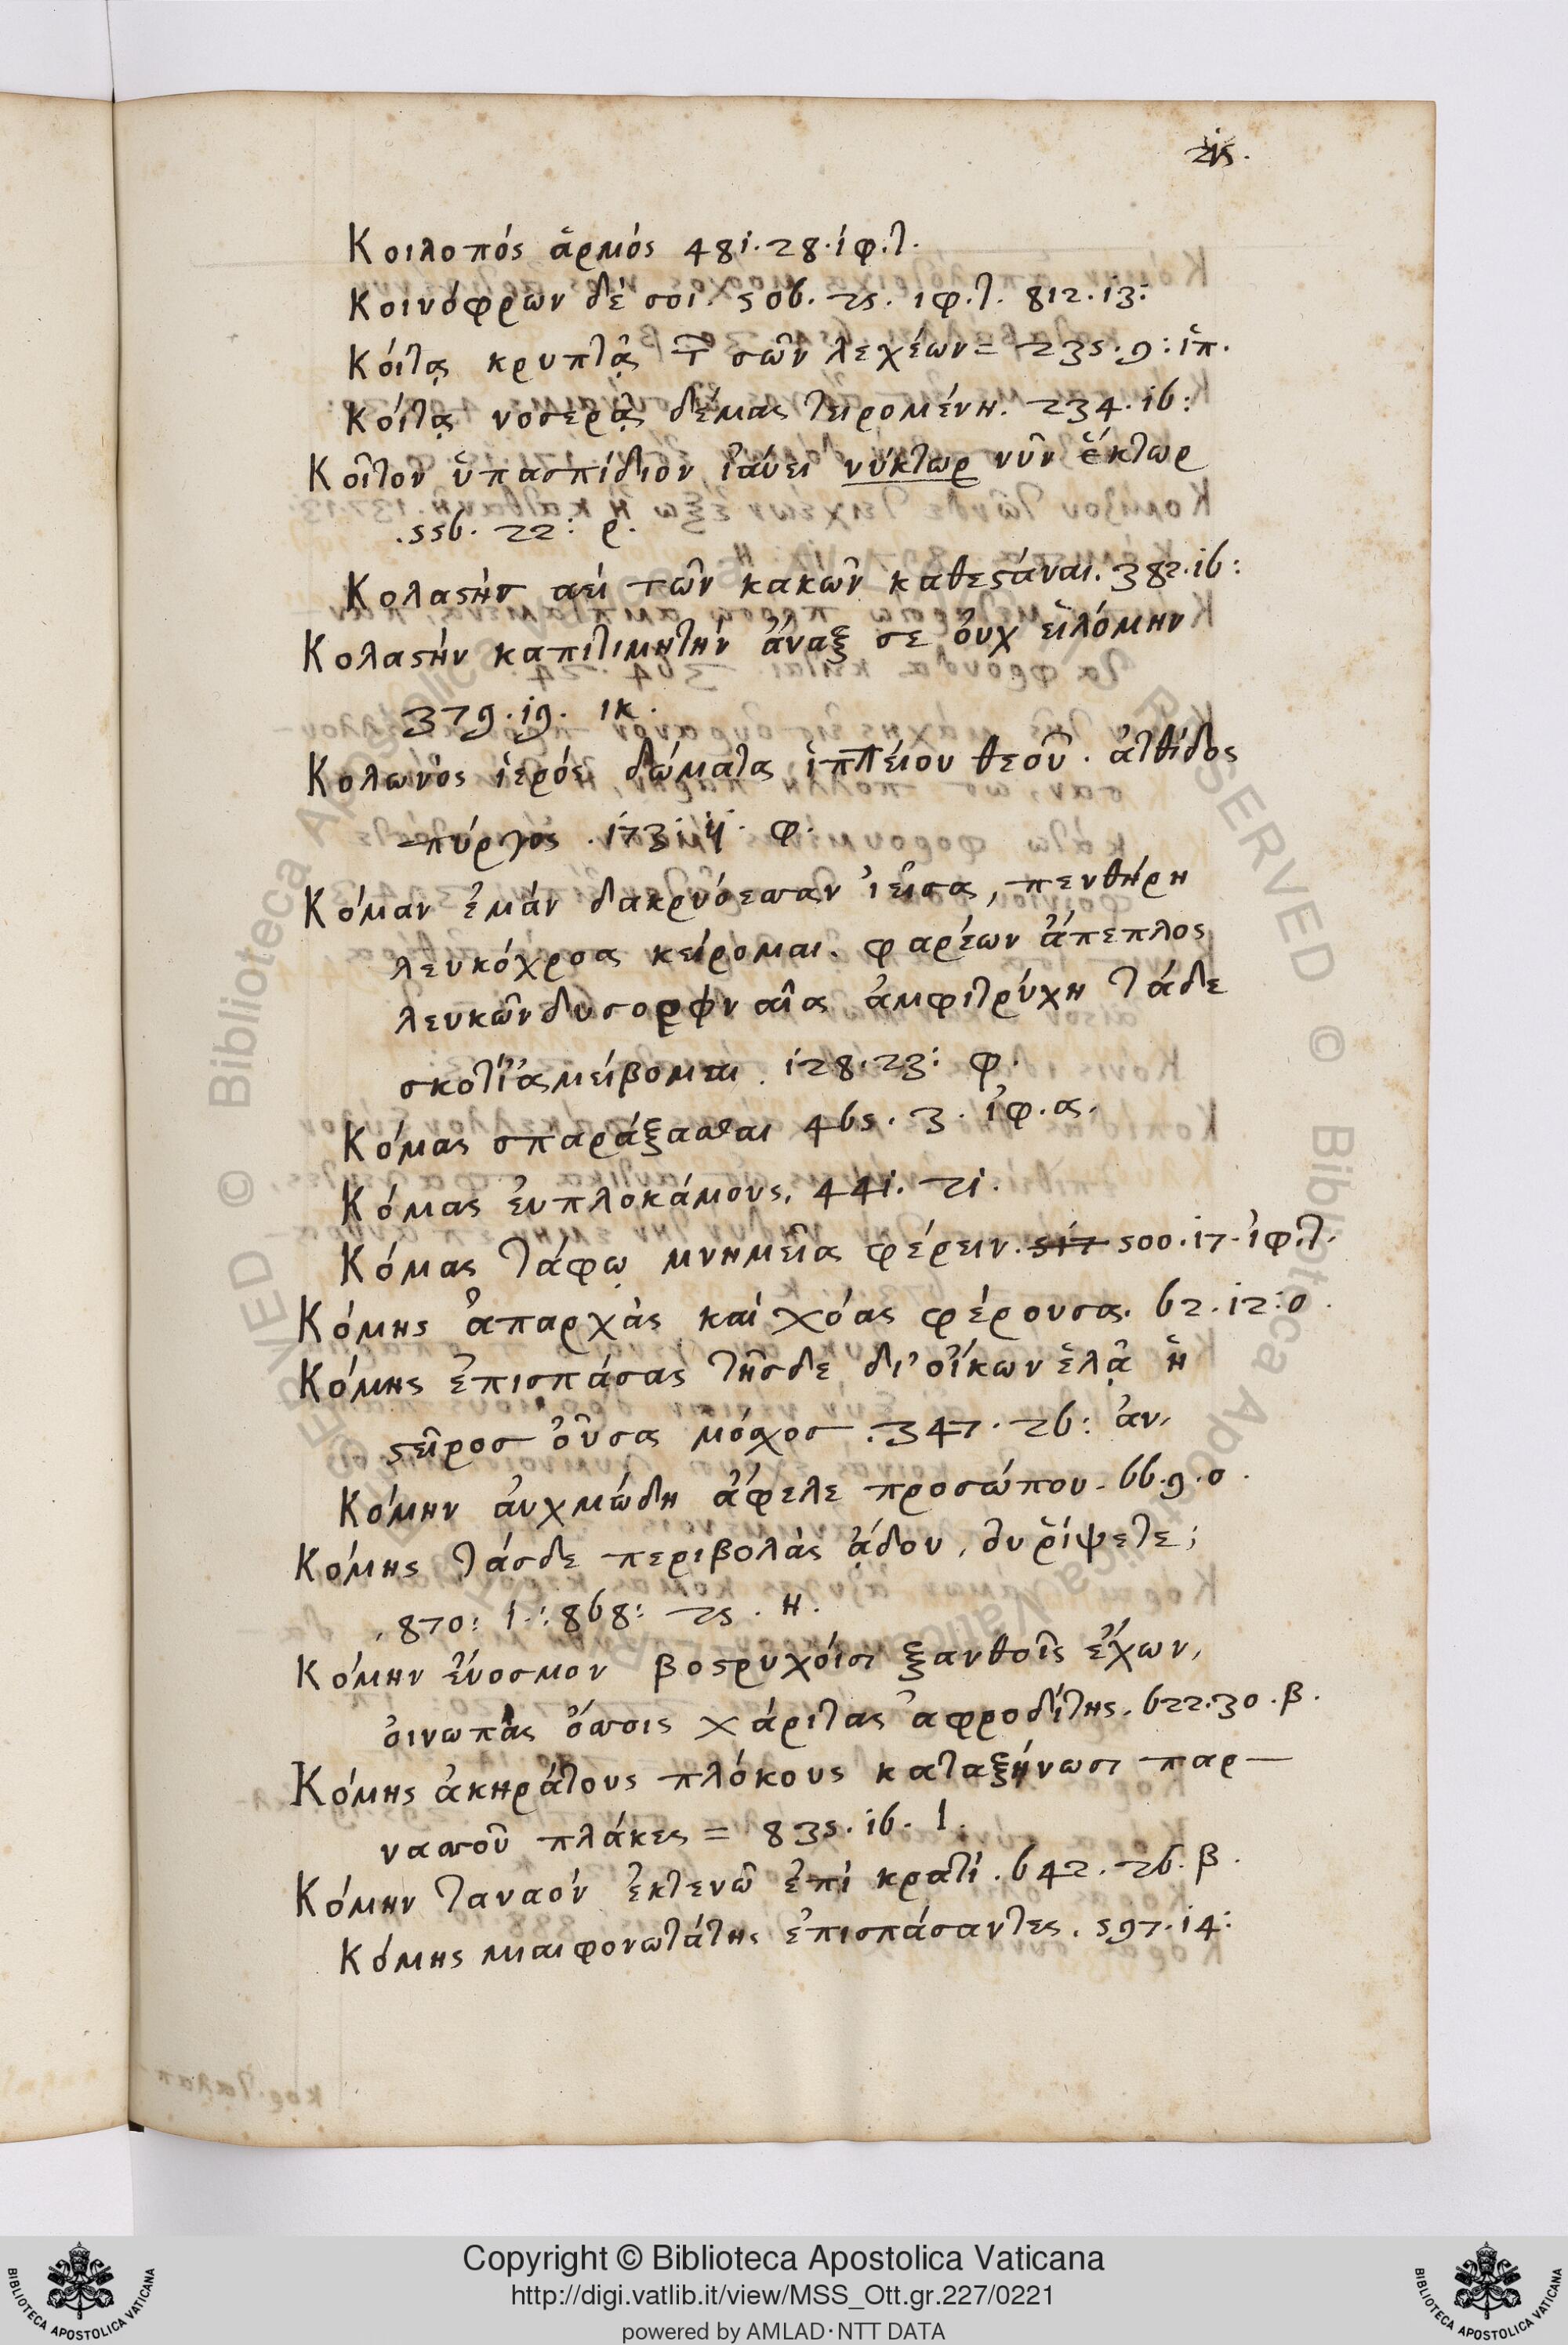 215.
Κοιλοπός ἁρμός 481.28.ἰφ.τ.
Κοινόφρων δέ σοι. 506. 25. ιφ.τ. 812.13:
Κοίτᾳ κρυπτᾷ τ̅ σῶν λεχέων = 235.9: ἱπ.
Κοίτᾳ νοσερᾷ δέμας τειρομένη. 234.16:
Κοῖτον ὑπασπίδιον ἰαύει νύκτωρ νῦν ἕκτωρ
.556. 22: ρ.
Κολαϛὴν αεί τῶν κακῶν καθεϛάναι. 382.16:
Κολαϛήν καπιτιμητήν ἄναξ σε ὀυχ εἱλόμην
379.19. ικ.
Κολωνὸς ἱερός δώματα ἱππείου θεοῦ. ἀτθίδος
πύργος .173: 4. φ.
Κόμαν ἐμάν δακρυόεσσαν ἱεῖσα, πενθήρη
λευκόχροα κείρομαι. φαρέων ἄπεπλος
λευκῶν δυσορφναῖα ἀμφιτρύχη τάδε
σκοτί' ἀμείβομαι. 128.23: φ.
Κόμας σπαράξασθαι 465. 3. ἰφ.α.
Κόμας ἐυπλοκάμους. 441. 21.
Κόμας τάφῳ μνημεῖα φέρειν. 517 500.17. ἰφ.τ.
Κόμης ἀπαρχὰς καί χοάς φέρουσα. 62.12: ο.
Κόμης ἐπισπάσας τῆσδε δι' οἴκων ἑλᾷ ἡ
ϛεῖρος ὀῦσα μόσχος. 347. 26: ἀν.
Κόμην ἀυχμώδη ἄφελε προσώπου. 66.9.ο.
Κόμης τάσδε περιβολὰς ᾅδου, ῥίψετε;
.870: 1.: 868: 25. Η.
Κόμην ἔυοσμον βοϛρυχόισι ξανθοῖς ἔχων,
ὀινωπὰς ὄσσοις χάριτας ἀφροδίτης. 622.30.β.
Κόμης ἀκηράτους πλόκους καταξήνωσι παρ-
νασσοῦ πλάκες = 835. 16. Ι.
Κόμην ταναόν ἐκτενῶ ἐπί κρατί. 642. 26. β.
Κόμης μιαιφονωτάτης ἐπισπάσαντες. 597.14:
Copyright © Biblioteca Apostolica Vaticana
http://digi.vatlib.it/view/MSS_Ott.gr.227/0221
powered by AMLAD·NTT DATA